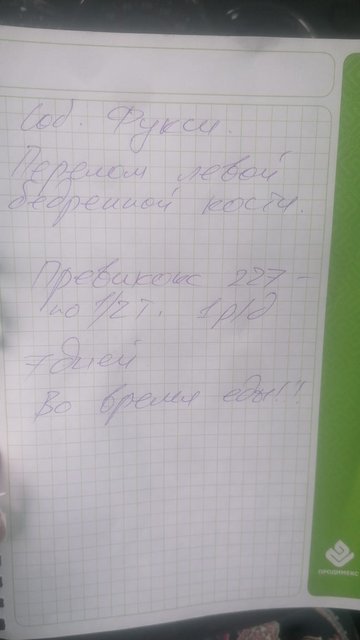 Соб. Фукси.
Перелом левой
бедренной кости.
Превикокс 227 -
по 1/2 т. 1 р/д
7 дней
Во время еды!!!
ПРОДИМЕКС